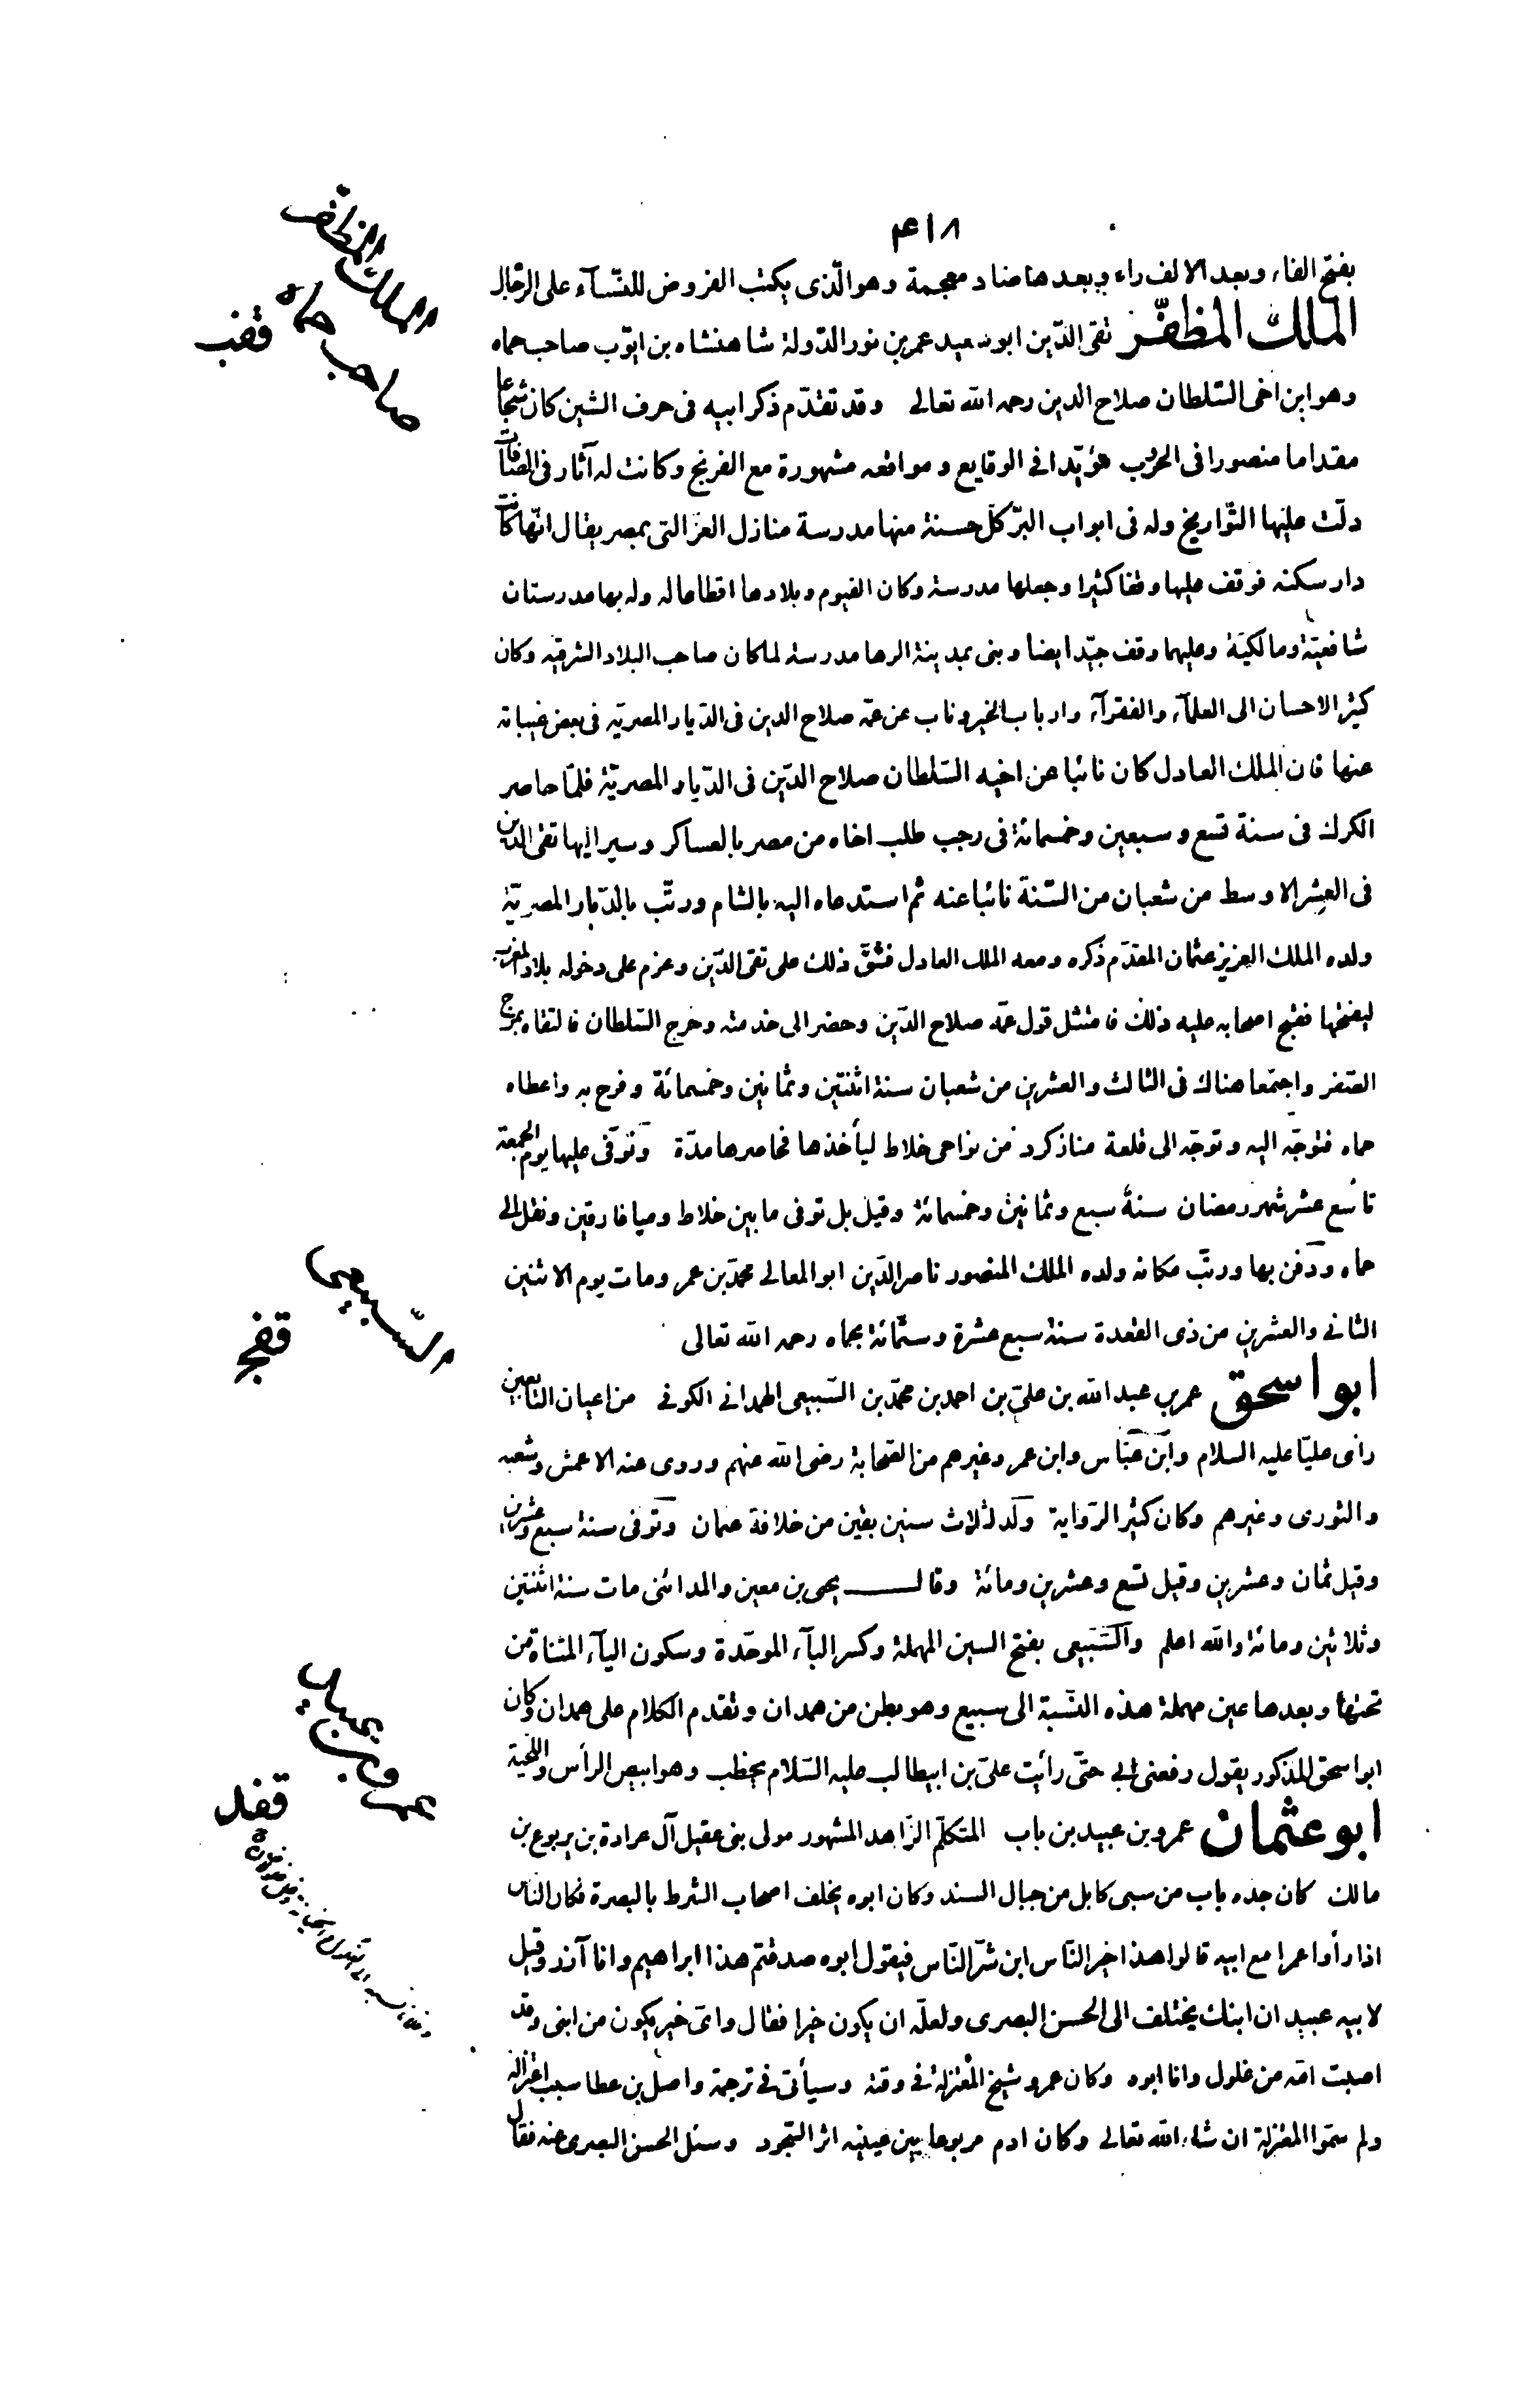 ۴۱۸
بفتح الفاء وبعد الالف راء وبعدها ضاد معجمة وهو الّذى يكتب الفروض للنّسآء على الرّجال
الملك المظفّر تقى الدّين ابو سعيد عمر بن نور الدّولة شاهنشاه بن ايّوب صاحب حماه
وهو ابن اخى السّلطان صلاح الدين رحمه الله تعالى وقد تقدّم ذكر ابيه فى حرف الشين كان شجاعا
مقداما منصورا فى الحروب مؤيّدا فى الوقايع ومواقعه مشهورة مع الفرنج وكانت له آثار فى المصافات
دلّت عليها التّواريخ وله فى ابواب البرّ كلّ حسنة منها مدرسة منازل العزّ التى بمصر يقال انّها كانت
دار سكنه فوقف عليها وقفا كثيرا وجعلها مدرسة وكان الفيوم وبلادها اقطاعا له وله بها مدرستان
شافعيّة ومالكيّة وعليهما وقف جيّد ايضا وبنى بمدينة الرها مدرسة لما كان صاحب البلاد الشرقيّه وكان
كثير الاحسان الى العلمآء والفقرآء وارباب الخير وناب عن عمّه صلاح الدين فى الدّيار المصريّه فى بعض غيباته
عنها فان الملك العادل كان نائبا عن اخيه السّلطان صلاح الدّين فى الدّيار المصريّة فلمّا حاصر
الكرك فى سنة تسع وسبعين وخمسمائة فى رجب طلب اخاه من مصر بالعساكر وسير اليها تقى الدّين
فى العشر الاوسط من شعبان من السّنة نائبا عنه ثم استدعاه اليه بالشام ورتّب بالدّيار المصريّة
ولده الملك العزيز عثمان المقدّم ذكره ومعه الملك العادل فشقّ ذلك على تقى الدّين وعزم على دخوله بلاد المغرب
ليفتحها فقبح اصحابه عليه ذلك فامتثل قول عمّه صلاح الدّين وحضر الى خدمته وخرج السّلطان فالتقاه بمرج
الصّفر واجتمعا هناك فى الثالث والعشرين من شعبان سنة اثنتين وثمانين وخمسمائة وفرح به واعطاه
حماه فتوجّه اليه وتوجّه الى قلعة منازكرد من نواحى خلاط ليأخذها فحاصرها مدّة وتوفّى عليها يوم الجمعة
تاسع عشر شهر رمضان سنة سبع وثمانين وخمسمائة وقيل بل توفى ما بين خلاط وميافارقين ونقل الى
حماه ودفن بها ورتّب مكانه ولده الملك المنصور ناصر الدّين ابو المعالى محمّد بن عمر ومات يوم الاثنين
الثانى والعشرين من ذى القعدة سنة سبع عشرة وستّمائة بحماه رحمه الله تعالى
ابو اسحق عمر بن عبد الله بن علىّ بن احمد بن محمّد بن السّبيعى الهمدانى الكوفى من اعيان التّابعين
رأى عليّا عليه السلام وابن عبّاس وابن عمر وغيرهم من الصّحابة رضى الله عنهم وروى عنه الاعمش وشعبه
والثورى وغيرهم وكان كثير الرّواية ولد لثلاث سنين بقين من خلافة عثمان وتوفى سنة سبع وعشرين
وقيل ثمان وعشرين وقيل تسع وعشرين ومائة وقال يحيى بن معين والمدائنى مات سنة اثنتين
وثلاثين ومائة والله اعلم والسّبيعى بفتح السين المهملة وكسر البآء الموحّدة وسكون اليآء المثناة من
تحتها وبعدها عين مهملة هذه النّسبة الى سبيع وهو بطن من همدان وتقدم الكلام على همدان وكان
ابو اسحق المذكور يقول رفعنى ابى حتّى رأيت علىّ بن ابيطالب عليه السّلام يخطب وهو ابيض الرأس واللّحية
ابو عثمان عمرو بن عبيد بن باب المتكلّم الزّاهد المشهور مولى بنى عقيل آل عرادة بن يربوع بن
مالك كان جده باب من سبى كابل من جبال السند وكان ابوه يخلف اصحاب الشرط بالبصرة فكان النّاس
اذا رأوا عمرا مع ابيه قالوا هذا خير النّاس ابن شرّ النّاس فيقول ابوه صدقتم هذا ابراهيم وانا آزر وقيل
لابيه عبيد ان ابنك يختلف الى الحسن البصرى ولعلّه ان يكون خيرا فقال واىّ خير يكون من ابنى وقد
اصبت امّه من غلول وانا ابوه وكان عمرو شيخ المعتزلة فى وقته وسيأتى فى ترجمة واصل بن عطا سبب اعتزاله
ولم سمّوا المعتزلة ان شاء الله تعالى وكان ادم مربوعا بين عينيه اثر السّجود وسئل الحسن البصرى عنه فقال
الملك المظفر
صاحب حماه
قفب
السّبيعى
قفج
عمرو بن عبيد
قفد